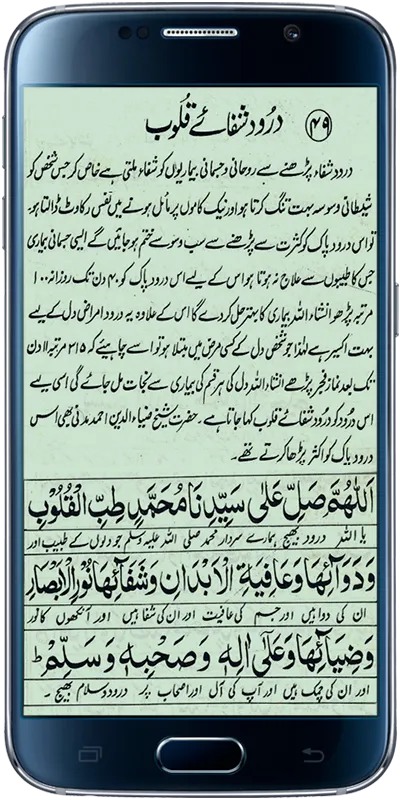 ۴۹ درُود شفائے قلُوب
درود شفاء پڑھنے سے روحانی و جسمانی بیماریوں کو شفاء ملتی ہے خاص کر جس شخص کو
شیطانی وسوسہ بہت تنگ کرتا ہو اور نیک کاموں پر مائل ہونے میں نفس رکاوٹ ڈالتا ہو۔
تو اس درود پاک کو کثرت سے پڑھنے سے سب وسوسے ختم ہو جائیں گے ایسی جسمانی بیماری
جس کا طبیبوں سے علاج نہ ہوتا ہو اس کے لیے اس درود پاک کو ۴۰ دن تک روزانہ ۱۰۰
مرتبہ پڑھو انشاء اللہ بیماری کا بہتر حل کر دے گا اس کے علاوہ یہ درود امراض دل کے لیے
بہت اکسیر ہے لہٰذا جو شخص دل کے کسی مرض میں مبتلا ہو تو اسے چاہیئے کہ ۳۱۵ مرتبہ ۱۱ دن
تک بعد نماز فجر پڑھے انشاء اللہ دل کی ہر قسم کی بیماری سے نجات مل جائے گی اسی لیے
اس درُود کو درُود شفائے قلوب کہا جاتا ہے۔ حضرت شیخ ضیاء الدین احمد مدنی بھی اس
درود پاک کو اکثر پڑھا کرتے تھے۔
اَللّٰهُمَّ صَلِّ عَلٰى سَيِّدِنَا مُحَمَّدٍ طِبِّ الْقُلُوْبِ
یا اللہ درود بھیج ہمارے سردار محمد صلی اللہ علیہ وسلم جو دلوں کے طبیب اور
وَدَوَآئِهَا وَعَافِيَةِ الْاَبْدَانِ وَشِفَآئِهَا نُوْرِ الْاَبْصَارِ
ان کی دوا ہیں اور جسم کی عافیت اور ان کی شفا ہیں اور آنکھوں کا نور
وَضِيَآئِهَا وَعَلٰى اٰلِهٖ وَصَحْبِهٖ وَسَلِّمْ ط
اور ان کی چمک ہیں اور آپ کی آل اور اصحاب پر درود و سلام بھیج ۔